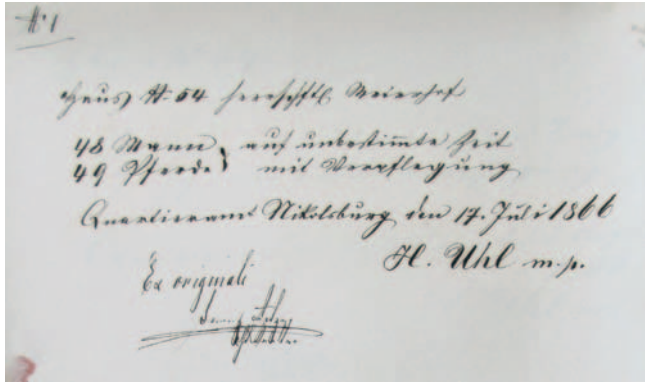 N. 1
Haus N. 54 herrschftl. Meierhof
48 Mann auf unbestimmte Zeit
49 Pferde mit Verpflegung
Quartieramt Nikolsburg den 17. Juli 1866
H. Uhl m.p.
Ex originali